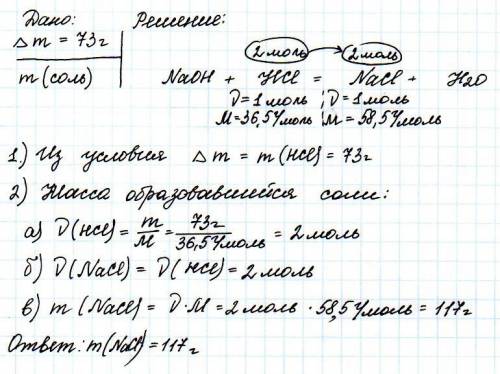 Дано:
Решение:
Δm = 73г
m(соль)
2 моль
2 моль
NaOH + HCl = NaCl + H2O
ν=1моль ; ν=1моль
M=36,5г/моль M=58,5г/моль
1) Из условия Δm = m(HCl) = 73г
2) Масса образовавшейся соли:
а) ν(HCl) = m/M = 73г/36,5г/моль = 2 моль
б) ν(NaCl) = ν(HCl) = 2 моль
в) m(NaCl) = ν·M = 2 моль · 58,5г/моль = 117г
Ответ: m(NaCl) = 117г